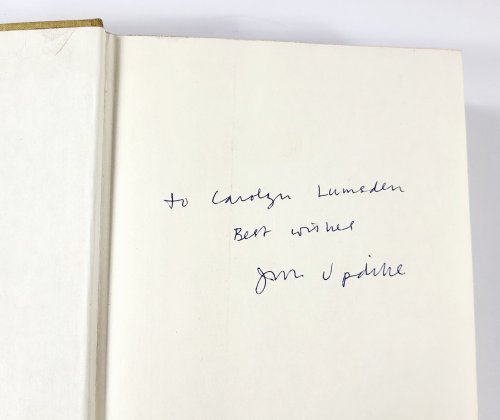 to Carolyn Lumsden
Best wishes
John Updike